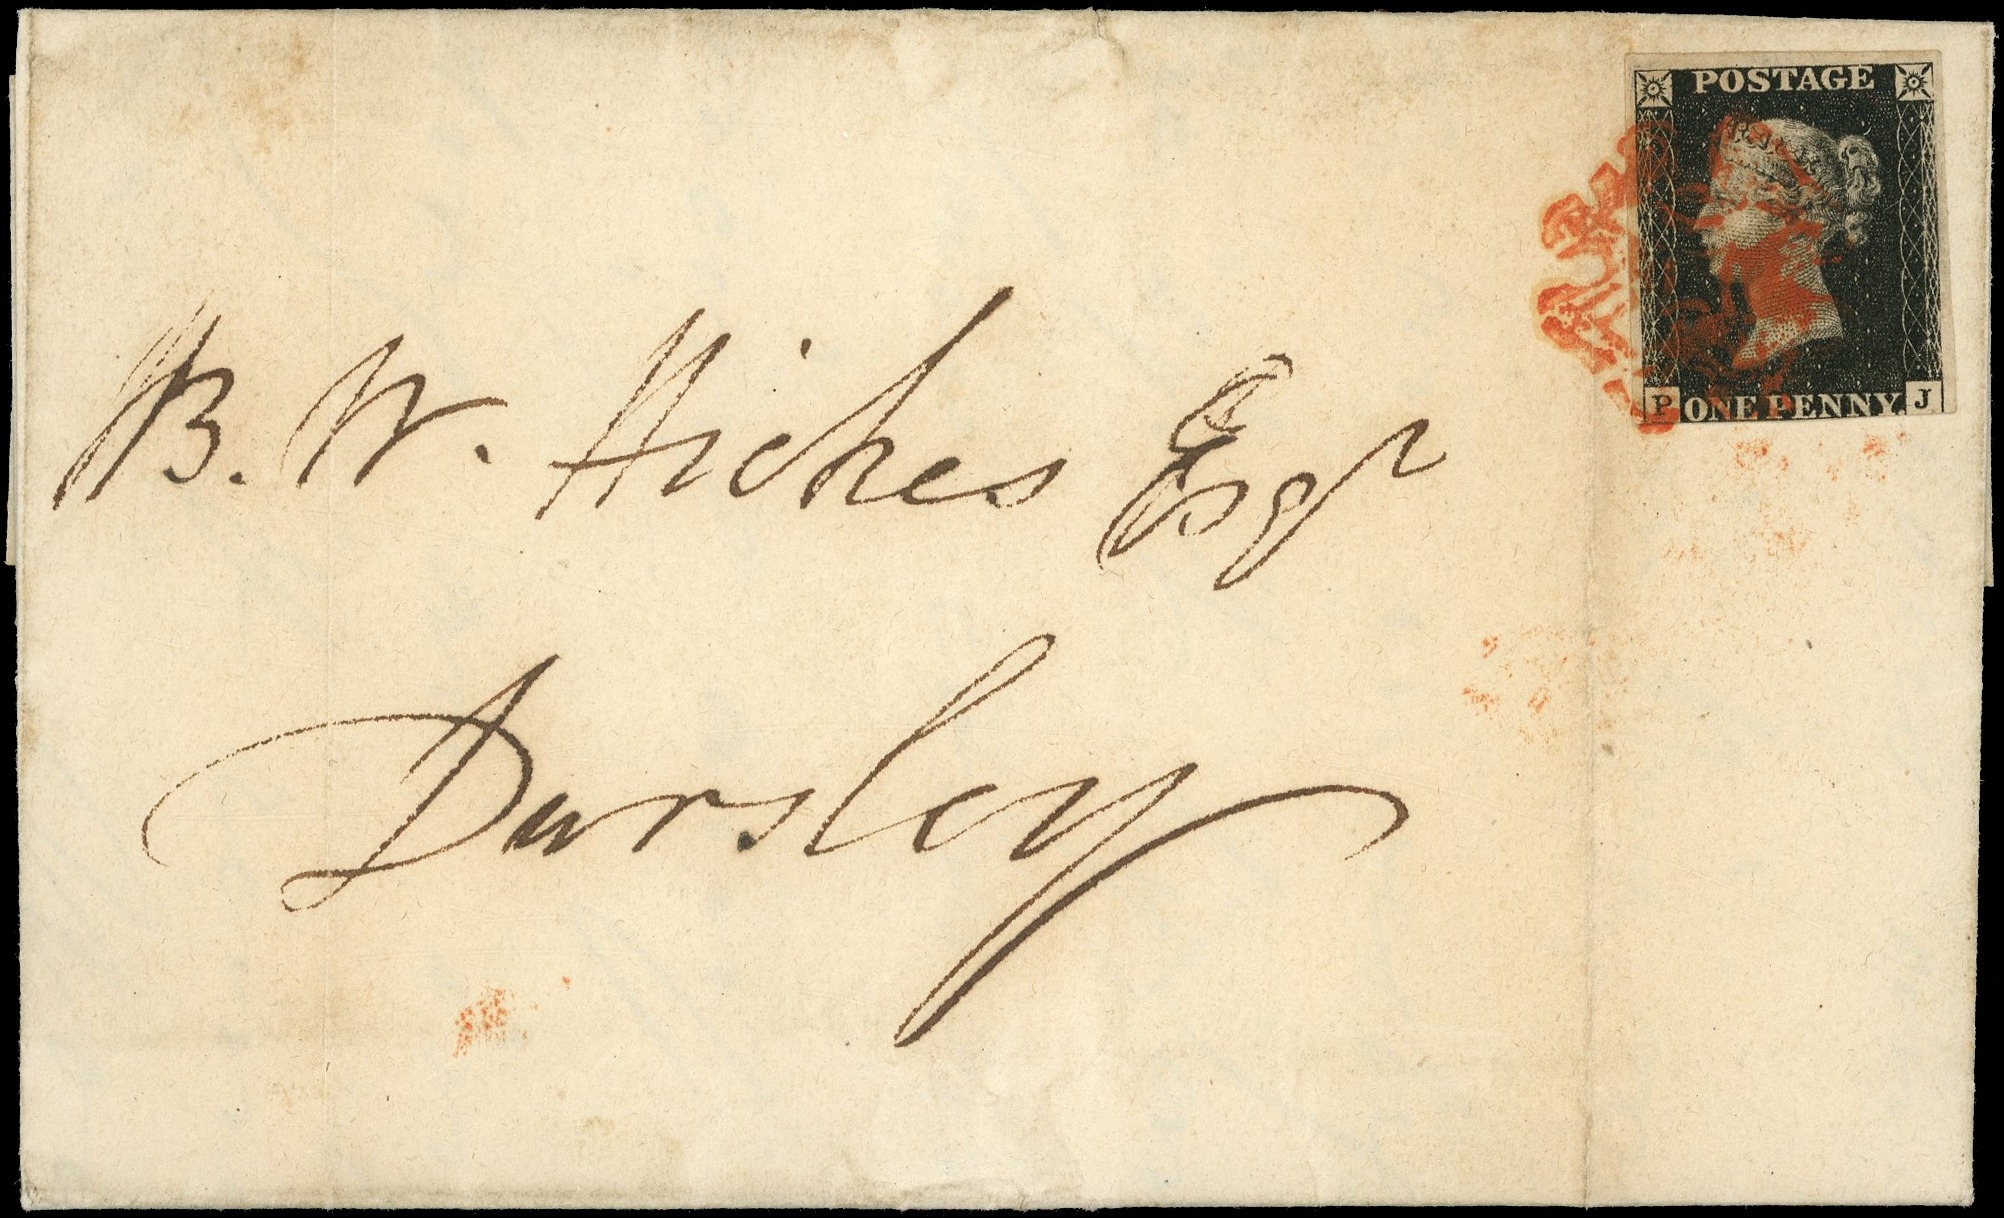 POSTAGE
P ONE PENNY J
B. W. Hickes Esqr
Dursley